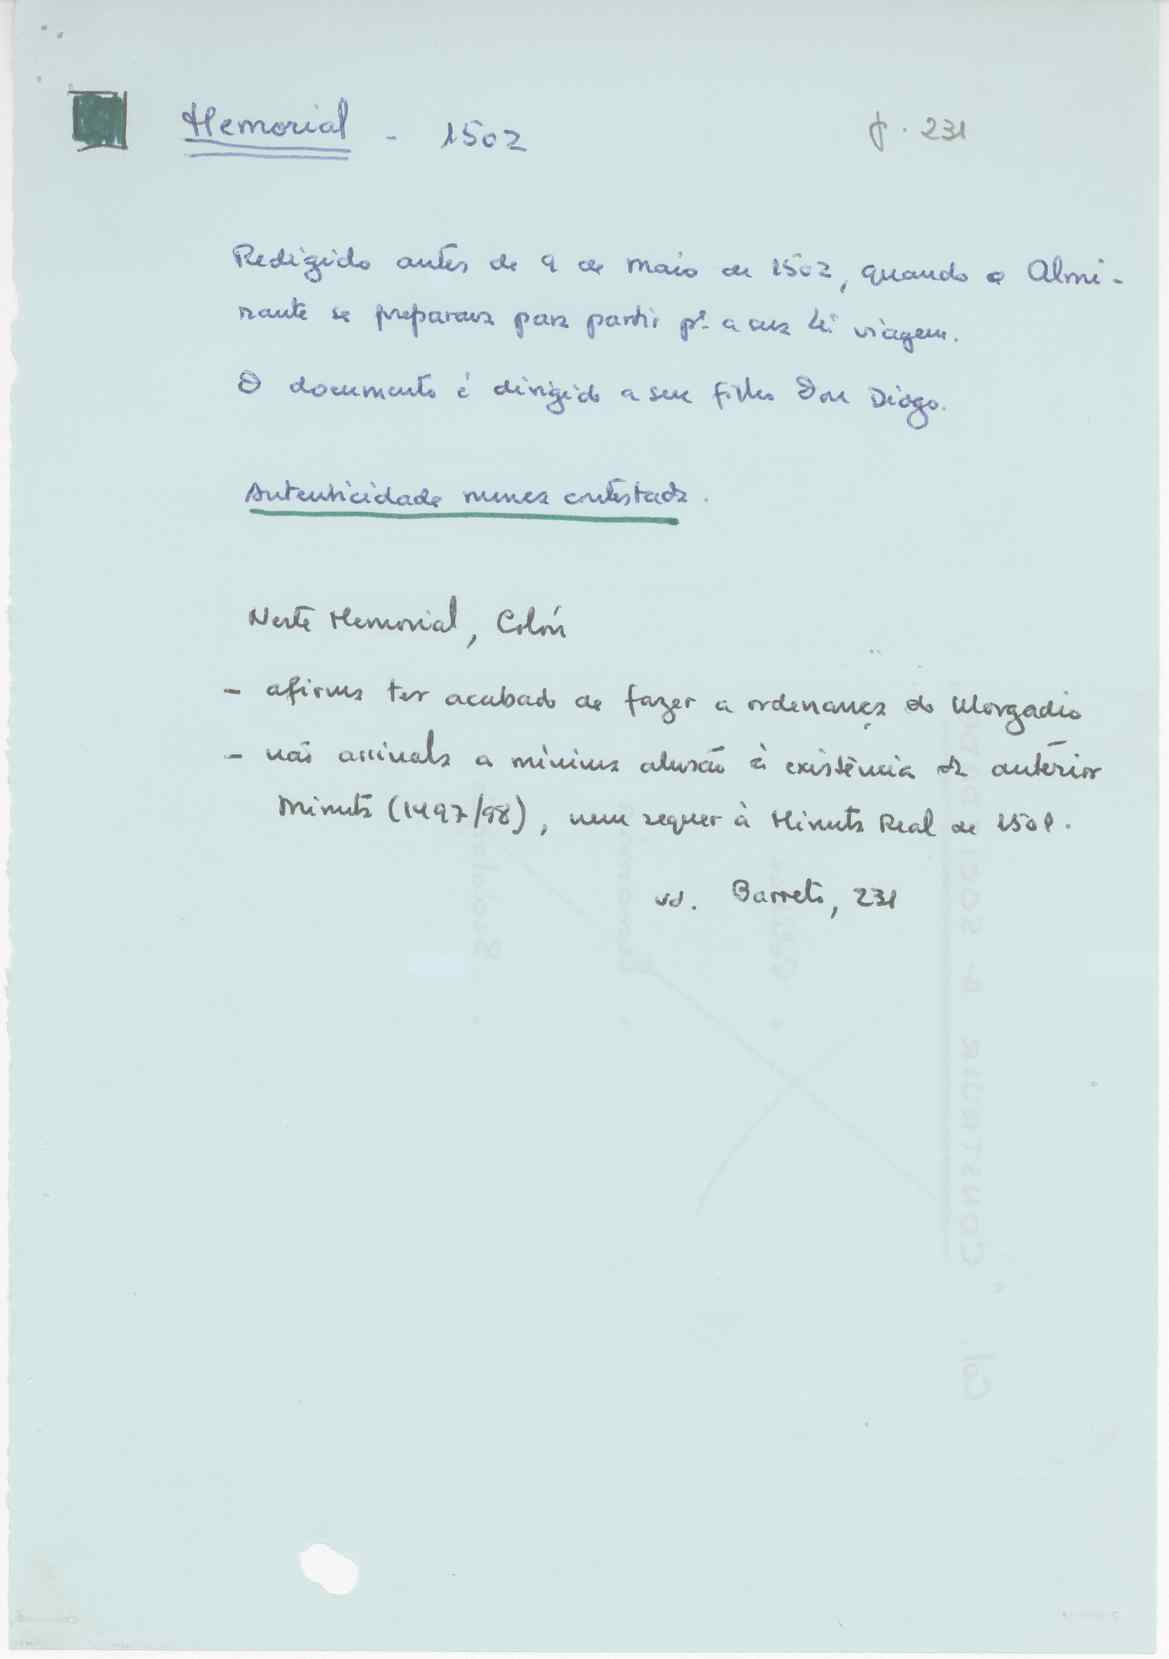 Memorial - 1502 f. 231
Redigido antes de 9 de maio de 1502, quando o Almi-
rante se preparava para partir pª a sua 4ª viagem.
O documento é dirigido a seu filho Don Diogo.
Autenticidade nunca contestada.
Neste Memorial, Colón
- afirma ter acabado de fazer a ordenança do Morgadio
- não assinala a mínima alusão à existência da anterior
Minuta (1497/98), nem sequer à Minuta Real de 1501.
vd. Barreto, 231